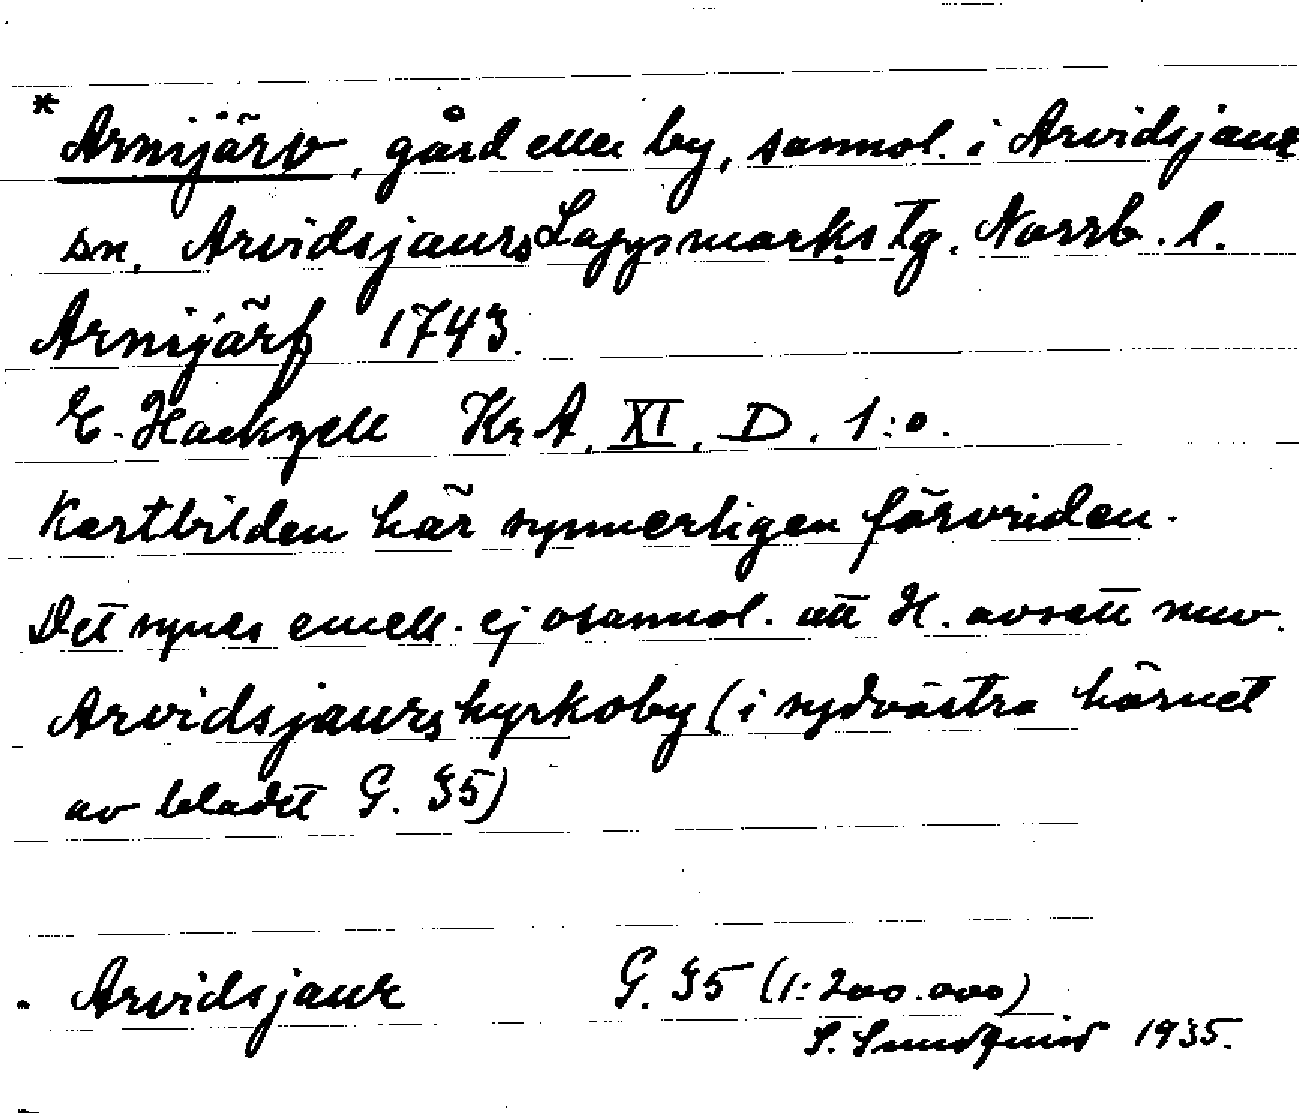 * Arnijärv, gård eller by, sannol. i Arvidsjaur
sn. Arvidsjaurs Lappmarks tg. Norrb. l.
Arnijärf 1743.
E. Hackzell Kr A. XI. D. 1:o.
Kartbilden här synnerligen förvriden.
Det synes emell. ej osannol. att H. avsett nuv.
Arvidsjaurs kyrkoby (i sydvästra hörnet
av bladet G. 35)
. Arvidsjaur G. 35 (1:200.000)
S. Sundquist 1935.